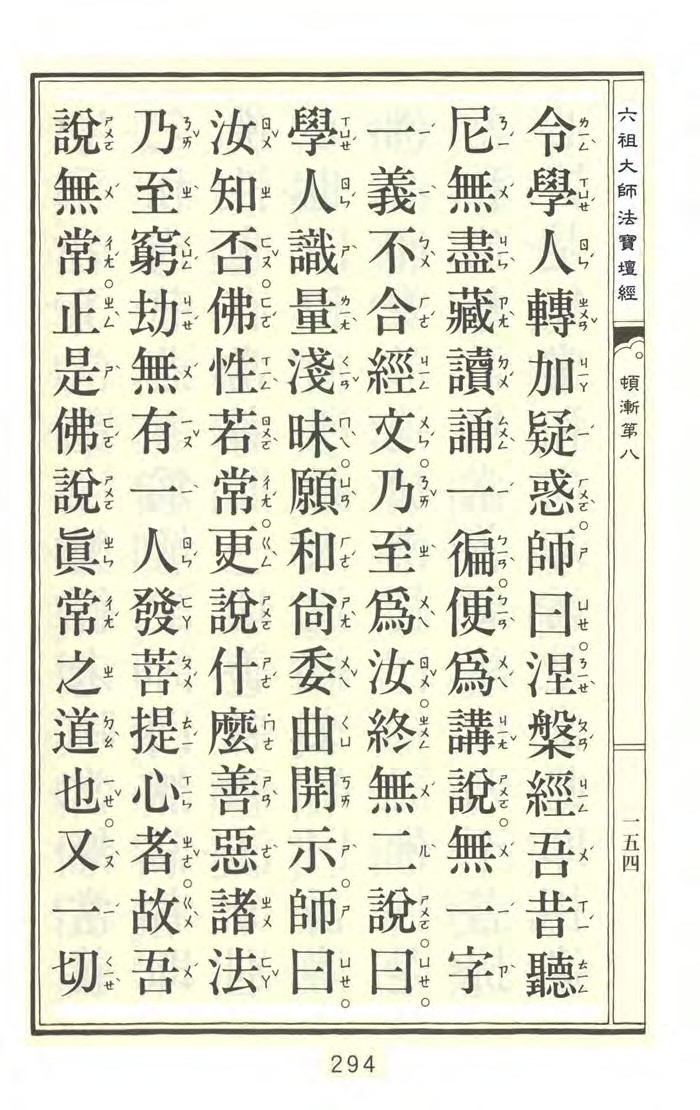 六祖大師法寶壇經
頓漸第八
一五四
令學人轉加疑惑。師曰。涅槃經吾昔聽
尼無盡藏讀誦一徧。便爲講說。無一字
一義不合經文。乃至爲汝。終無二說。曰。
學人識量淺昧。願和尙委曲開示。師曰。
汝知否。佛性若常。更說什麼善惡諸法
乃至窮劫無有一人發菩提心者。故吾
說無常。正是佛說眞常之道也。又一切
294